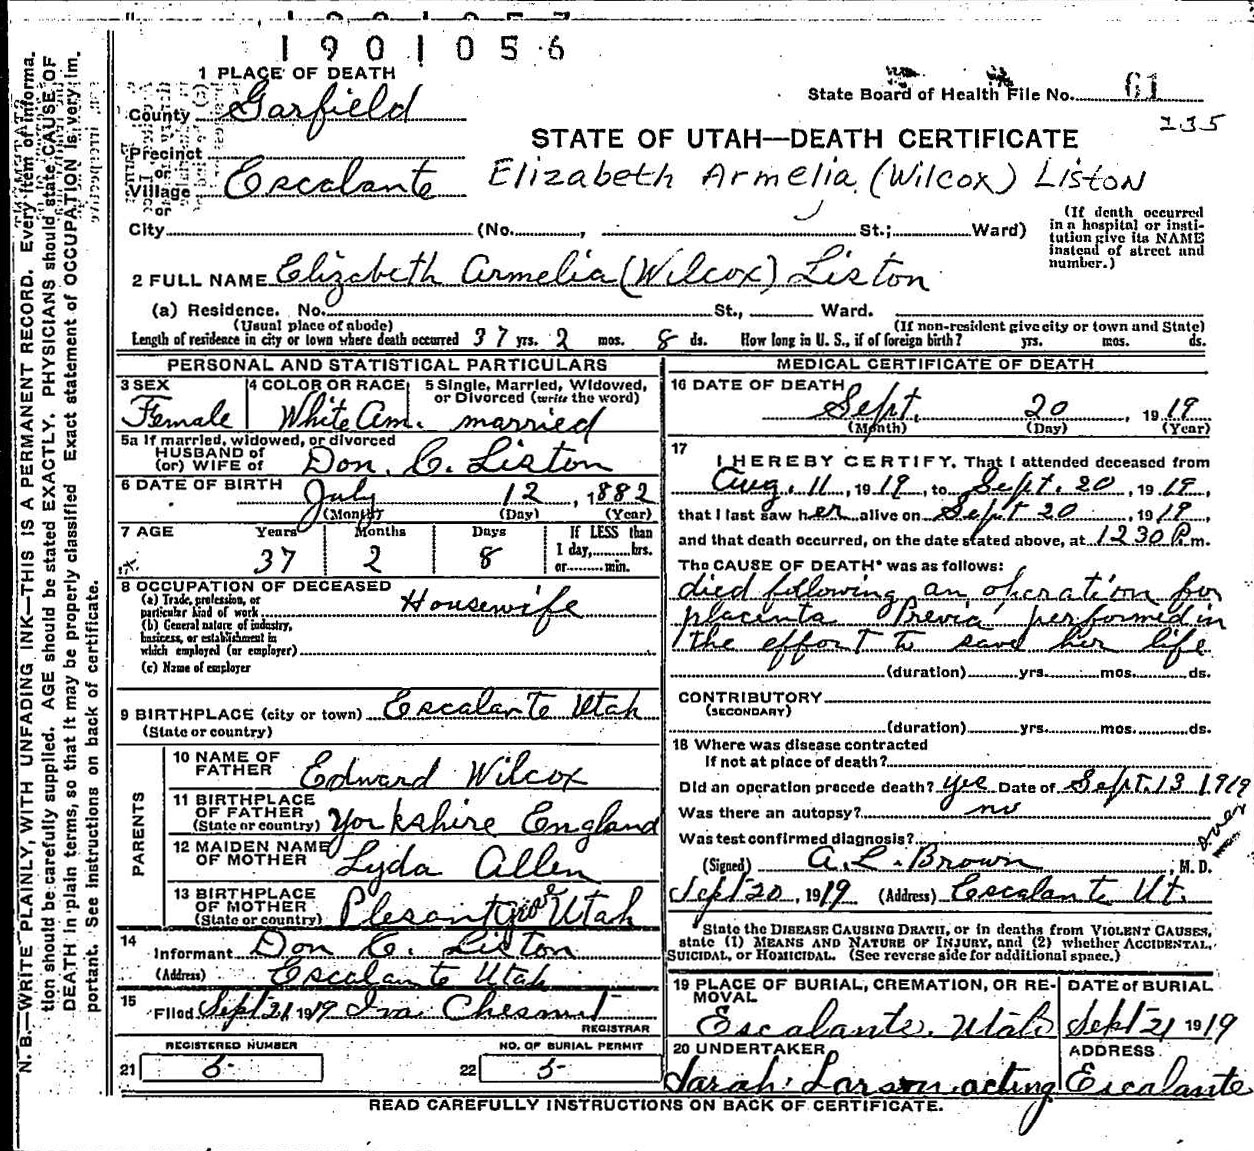 1901056
1 PLACE OF DEATH
County Garfield
State Board of Health File No. 61
235
STATE OF UTAH—DEATH CERTIFICATE
Precinct
or
Village Escalante
Elizabeth Armelia (Wilcox) Liston
or
City (No. , St.; Ward)
(If death occurred in a hospital or insti-
tution give its NAME instead of street and number.)
2 FULL NAME Elizabeth Armelia (Wilcox) Liston
(a) Residence. No. St., Ward.
(Usual place of abode) (If non-resident give city or town and State)
Length of residence in city or town where death occurred 37 yrs. 2 mos. 8 ds. How long in U. S., if of foreign birth? yrs. mos. ds.
PERSONAL AND STATISTICAL PARTICULARS
3 SEX
Female
4 COLOR OR RACE
White Am.
5 Single, Married, Widowed,
or Divorced (write the word)
married
5a If married, widowed, or divorced
HUSBAND of
(or) WIFE of Don. C. Liston
6 DATE OF BIRTH July 12, 1882
(Month) (Day) (Year)
7 AGE Years Months Days If LESS than
37 2 8 1 day, hrs.
or min.
8 OCCUPATION OF DECEASED
(a) Trade, profession, or
particular kind of work Housewife
(b) General nature of industry,
business, or establishment in
which employed (or employer)
(c) Name of employer
9 BIRTHPLACE (city or town) Escalante Utah
(State or country)
PARENTS
10 NAME OF
FATHER Edward Wilcox
11 BIRTHPLACE
OF FATHER
(State or country) Yorkshire England
12 MAIDEN NAME
OF MOTHER Lyda Allen
13 BIRTHPLACE
OF MOTHER
(State or country) Plesant Grove Utah
14
Informant Don C. Liston
(Address) Escalante Utah
15
Filed Sept 21 1919 Iva Chesnut
REGISTRAR
REGISTERED NUMBER NO. OF BURIAL PERMIT
21 5 22 5
MEDICAL CERTIFICATE OF DEATH
16 DATE OF DEATH
Sept. 20, 1919
(Month) (Day) (Year)
17
I HEREBY CERTIFY, That I attended deceased from
Aug. 11, 1919, to Sept. 20, 1919,
that I last saw her alive on Sept 20, 1919,
and that death occurred, on the date stated above, at 12 30 P.m.
The CAUSE OF DEATH* was as follows:
died following an operation for
placenta Previa performed in
the effort to save her life
(duration) yrs. mos. ds.
CONTRIBUTORY
(SECONDARY)
(duration) yrs. mos. ds.
18 Where was disease contracted
If not at place of death?
Did an operation precede death? yes Date of Sept. 13 1919
Was there an autopsy? no
Was test confirmed diagnosis?
(Signed) A. L. Brown, M. D.
over
Sept 20, 1919 (Address) Escalante Ut.
*State the DISEASE CAUSING DEATH, or in deaths from VIOLENT CAUSES,
state (1) MEANS AND NATURE OF INJURY, and (2) whether ACCIDENTAL,
SUICIDAL, or HOMICIDAL. (See reverse side for additional space.)
19 PLACE OF BURIAL, CREMATION, OR RE-
MOVAL
Escalante, Utah
DATE of BURIAL
Sept 21 1919
20 UNDERTAKER
Sarah Larson acting
ADDRESS
Escalante
READ CAREFULLY INSTRUCTIONS ON BACK OF CERTIFICATE.
N. B.—WRITE PLAINLY, WITH UNFADING INK—THIS IS A PERMANENT RECORD. Every item of informa-
tion should be carefully supplied. AGE should be stated EXACTLY. PHYSICIANS should state CAUSE OF
DEATH in plain terms, so that it may be properly classified. Exact statement of OCCUPATION is very im-
portant. See instructions on back of certificate.